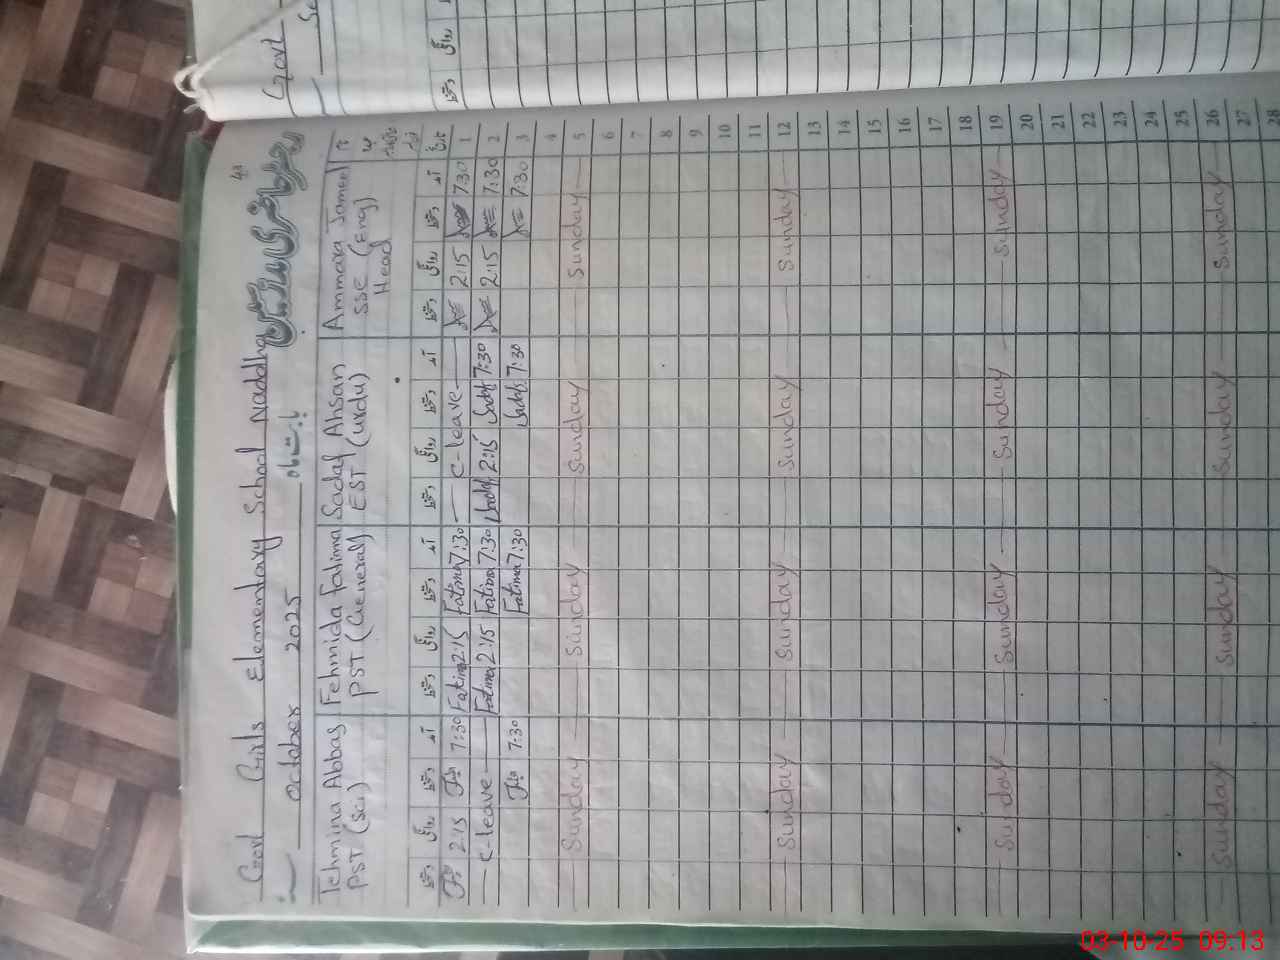 Govt Girls Elementary School Naddha
رجسٹر حاضری مدرسین
بابت ماہ October 2025
Tehmina Abbas Fehmida Fatima Sadaf Ahsan Ammara Jameel
PST (Sci) PST (General) EST (Urdu) SSE (Eng)
Head
دستخط روانگی دستخط آمد دستخط روانگی دستخط آمد دستخط روانگی دستخط آمد دستخط روانگی دستخط آمد تاریخ
2:15 7:30 Fatima 2:15 Fatima 7:30 C-leave 2:15 7:30 1
C-leave Fatima 2:15 Fatima 7:30 Sadaf 2:15 Sadaf 7:30 2:15 7:30 2
7:30 Fatima 7:30 Sadaf 7:30 7:30 3
4
Sunday Sunday Sunday Sunday 5
6
7
8
9
10
11
Sunday Sunday Sunday Sunday 12
13
14
15
16
17
18
Sunday Sunday Sunday Sunday 19
20
21
22
23
24
25
Sunday Sunday Sunday Sunday 26
27
28
Govt
03-10-25 09:13